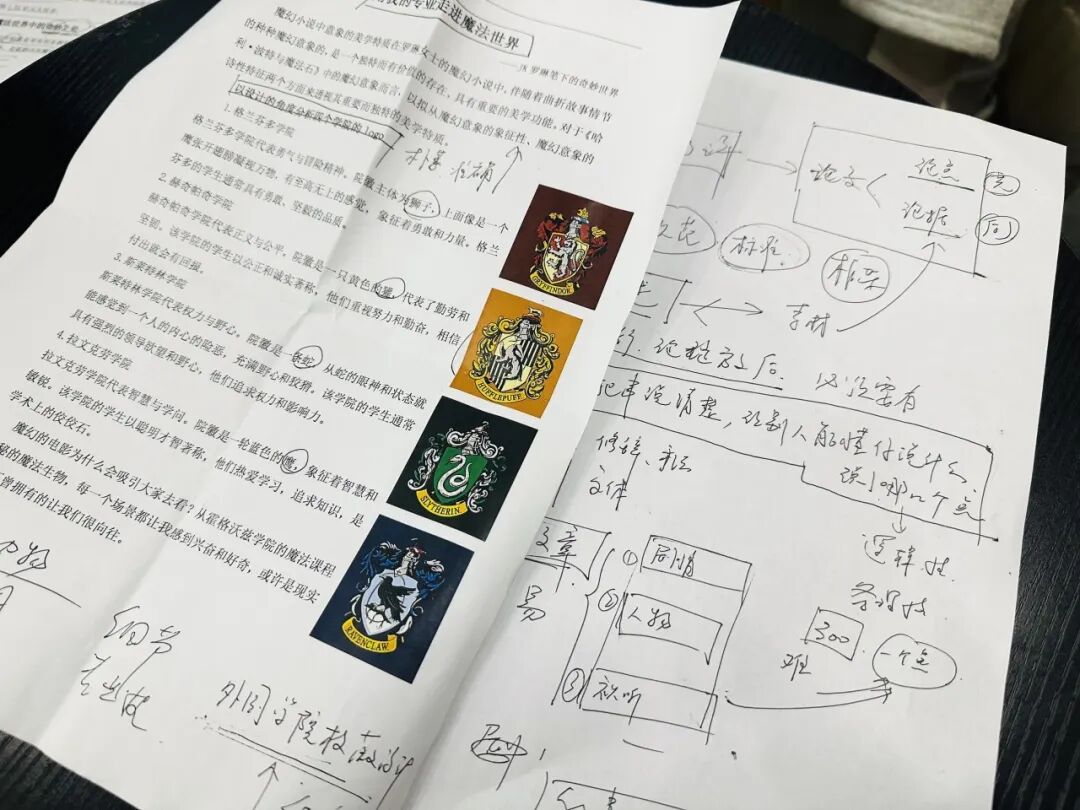 用我的专业走进魔法世界
——JK 罗琳笔下的奇妙世界
魔幻小说中意象的美学特质在罗琳女士的魔幻小说中,伴随着曲折故事情节
的种种魔幻意象的,是一个独特而有价值的存在,具有重要的美学功能。对于《哈
利·波特与魔法石》中的魔幻意象而言,以拟从魔幻意象的象征性、魔幻意象的
诗性特征两个方面来透视其重要而独特的美学特质。
以设计的角度分析四个学院的 logo
朴素 准确
1. 格兰芬多学院
格兰芬多学院代表勇气与冒险精神。院徽主体为狮子,上面像是一个
魔张开翅膀凝视万物,有至高无上的感觉,象征着勇敢和力量。格兰
芬多的学生通常具有勇敢、坚毅的品质。
2. 赫奇帕奇学院
赫奇帕奇学院代表正义与公平。院徽是一只黄色的獾,代表了勤劳和
坚韧。该学院的学生以公正和诚实著称,他们重视努力和勤奋,相信
付出就会有回报。
3. 斯莱特林学院
斯莱特林学院代表权力与野心。院徽是一条蛇,从蛇的眼神和状态就
能感觉到一个人的内心的险恶,充满野心和狡猾。该学院的学生通常
具有强烈的领导欲望和野心,他们追求权力和影响力。
4. 拉文克劳学院
拉文克劳学院代表智慧与学问。院徽是一轮蓝色的鹰,象征着智慧和
敏锐。该学院的学生以聪明才智著称,他们热爱学习,追求知识,是
学术上的佼佼石。
魔幻的电影为什么会吸引大家去看?从霍格沃兹学院的魔法课程
秘的魔法生物,每一个场景都让我感到兴奋和好奇,或许是现实
曾拥有的让我们很向往。
GRYFFINDOR
HUFFLEPUFF
SLYTHERIN
RAVENCLAW
细节
外国学院校徽设计
论文
论点
论据
先
后
标准
框架
素材
必须要有
把事说清楚,让别人能懂你说什么
说1哪一个点
修辞、手法
文体
选择性
文章
易
①
剧情
②
人物
③
视听
300
难
一个点